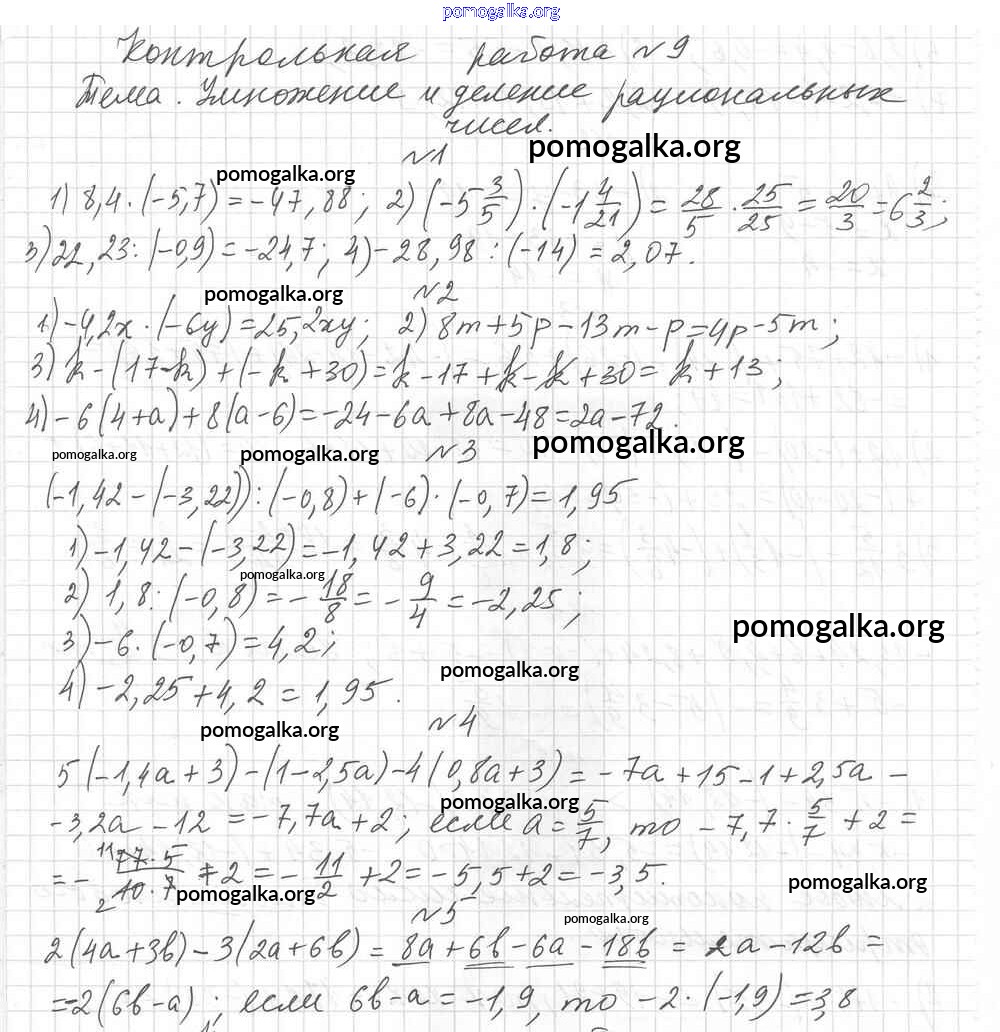 pomogalka.org
Контрольная работа №9
Тема. Умножение и деление рациональных
чисел.
№1
pomogalka.org
pomogalka.org
1) 8,4 · (-5,7) = -47,88; 2) (-5 3/5) · (-1 4/21) = 28/5 · 25/25 = 20/3 = 6 2/3;
3) 22,23 : (-0,9) = -24,7; 4) -28,98 : (-14) = 2,07.
pomogalka.org
№2
1) -4,2x · (-6y) = 25,2xy; 2) 8m + 5p - 13m - p = 4p - 5m;
3) k - (17 - k) + (-k + 30) = k - 17 + k - k + 30 = k + 13;
4) -6(4 + a) + 8(a - 6) = -24 - 6a + 8a - 48 = 2a - 72.
pomogalka.org
pomogalka.org
№3
pomogalka.org
(-1,42 - (-3,22)) : (-0,8) + (-6) · (-0,7) = 1,95
1) -1,42 - (-3,22) = -1,42 + 3,22 = 1,8;
pomogalka.org
2) 1,8 : (-0,8) = - 18/8 = - 9/4 = -2,25;
pomogalka.org
3) -6 · (-0,7) = 4,2;
pomogalka.org
4) -2,25 + 4,2 = 1,95.
pomogalka.org
№4
5(-1,4a + 3) - (1 - 2,5a) - 4(0,8a + 3) = -7a + 15 - 1 + 2,5a -
pomogalka.org
-3,2a - 12 = -7,7a + 2; если a = 5/7, то -7,7 · 5/7 + 2 =
= - 11 77·5 / 2 10·7 + 2 = - 11/2 + 2 = -5,5 + 2 = -3,5.
pomogalka.org
pomogalka.org
№5
pomogalka.org
2(4a + 3b) - 3(2a + 6b) = 8a + 6b - 6a - 18b = 2a - 12b =
= -2(6b - a); если 6b - a = -1,9, то -2 · (-1,9) = 3,8